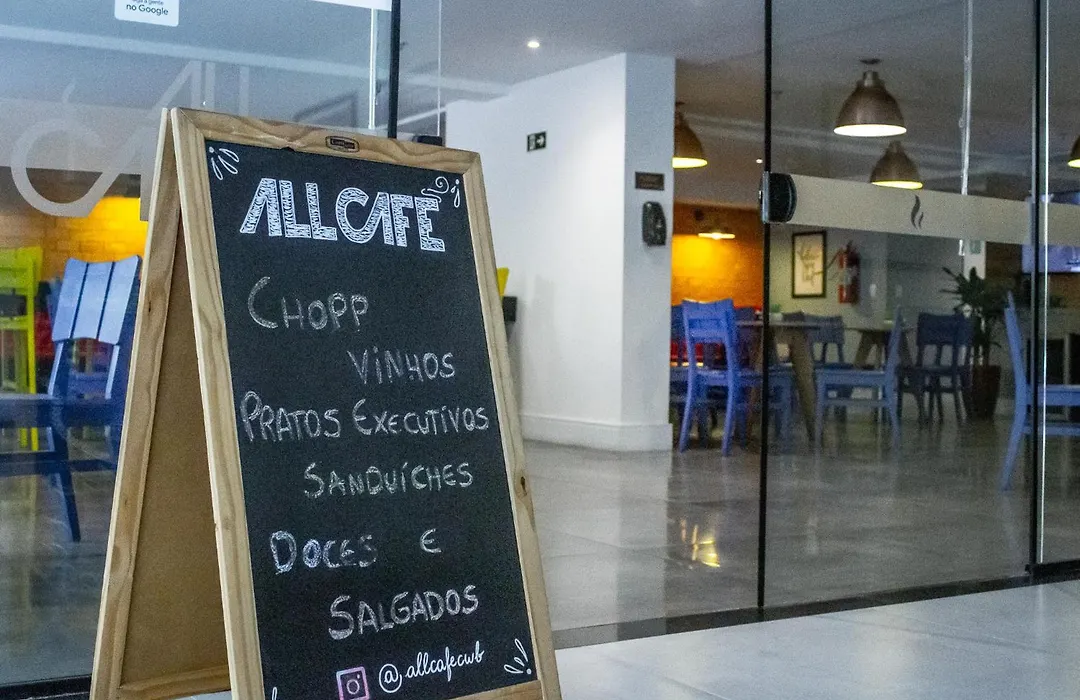 no Google
ALL CAFÉ
CHOPP
VINHOS
PRATOS EXECUTIVOS
SANDUÍCHES
DOCES E
SALGADOS
@allcafecwb